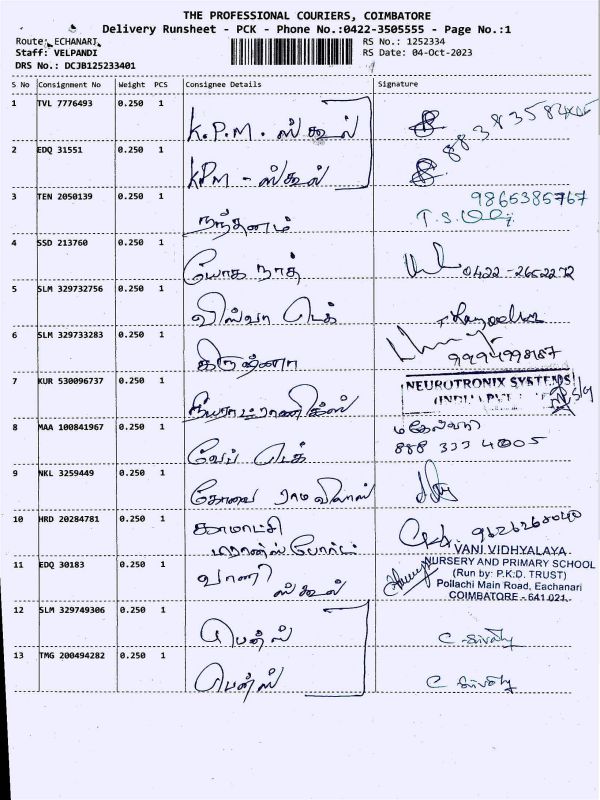 THE PROFESSIONAL COURIERS, COIMBATORE
Delivery Runsheet - PCK - Phone No.:0422-3505555 - Page No.:1
Route: ECHANARI RS No.: 1252334
Staff: VELPANDI RS Date: 04-Oct-2023
DRS No.: DCJB125233401
S No Consignment No Weight PCS Consignee Details Signature
1 TVL 7776493 0.250 1 K.P.M. ஸ்கூல்
2 EDQ 31551 0.250 1 KPM - ஸ்கூல்
3 TEN 2050139 0.250 1 நந்தனம் 9865385767
4 SSD 213760 0.250 1 யோக நாத் 0422-2652272
5 SLM 329732756 0.250 1 வில்வா டெக்
6 SLM 329733283 0.250 1 கிருஷ்ணா
7 KUR 530096737 0.250 1 நியூராட்ரானிக்ஸ் NEUROTRONIX SYSTEMS
8 MAA 100841967 0.250 1 வேப் டெக் மகேஸ்வரி
888 333 4005
9 NKL 3259449 0.250 1 கோவை ராம விலாஸ்
10 HRD 20284781 0.250 1 காமாட்சி
டிரான்ஸ்போர்ட்
11 EDQ 30183 0.250 1 வாணி ஸ்கூல்
VANI VIDHYALAYA
NURSERY AND PRIMARY SCHOOL
(Run by: P.K.D. TRUST)
Pollachi Main Road, Eachanari
COIMBATORE - 641 021.
12 SLM 329749306 0.250 1 பென்ஸ்
13 TMG 200494282 0.250 1 பென்ஸ்